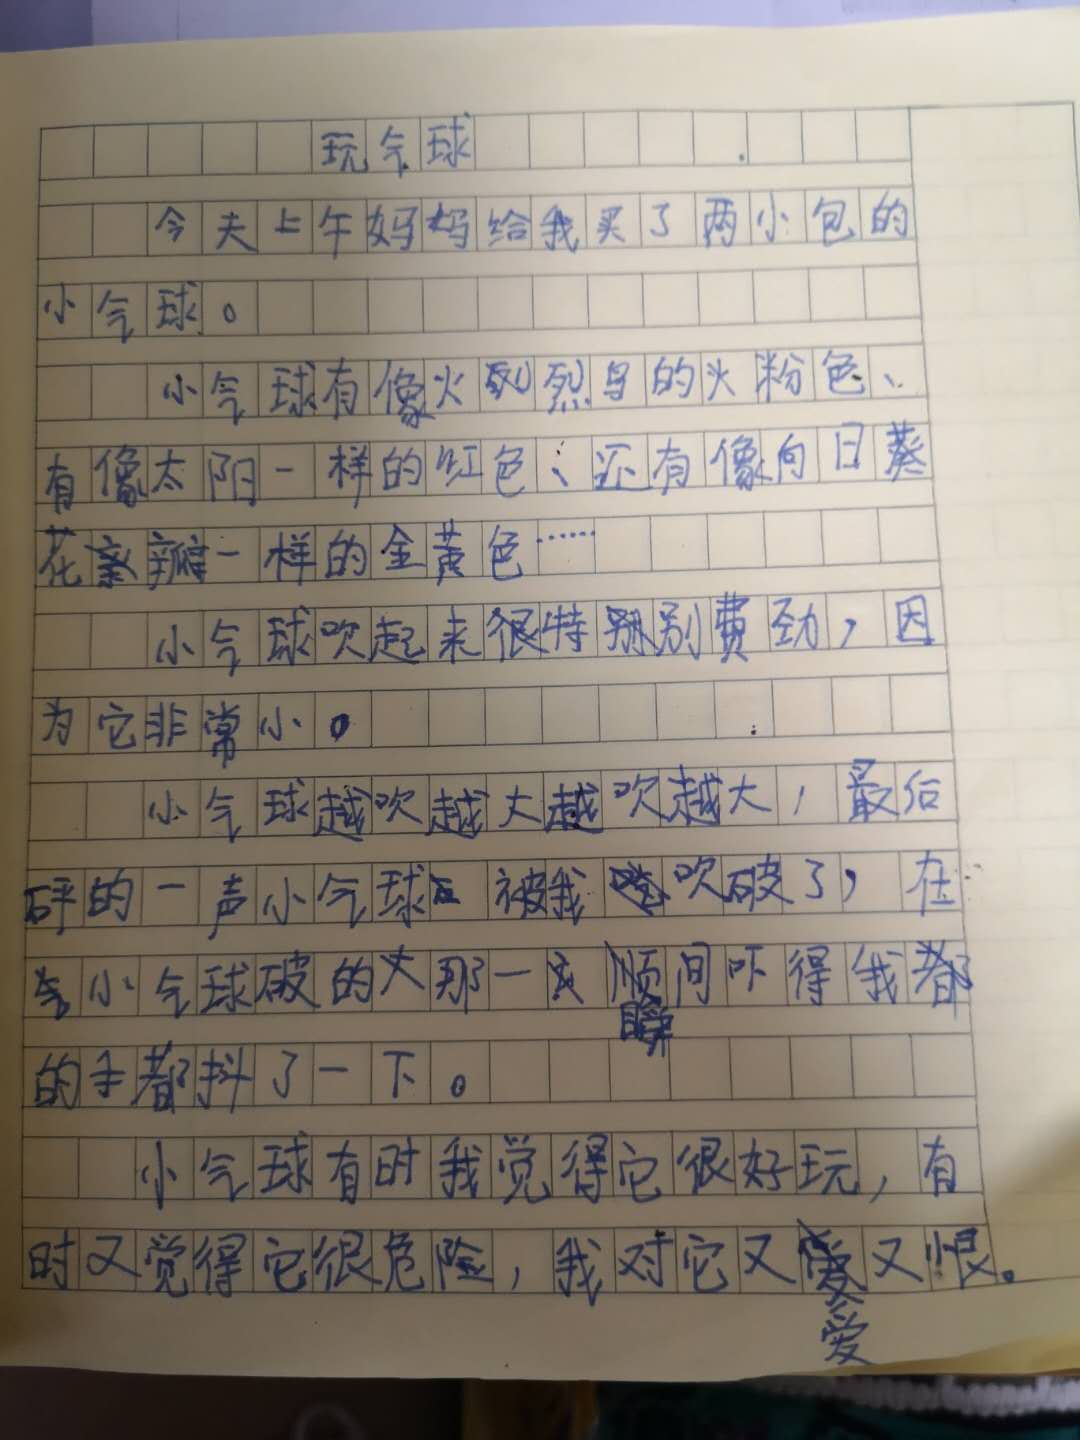 玩气球
今天上午妈妈给我买了两小包的
小气球。
小气球有像火烈鸟的火粉色、
有像太阳一样的红色、还有像向日葵
花瓣一样的金黄色……
小气球吹起来很特别费劲，因
为它非常小。
小气球越吹越大越吹越大，最后
砰的一声小气球被我吹破了，在
小气球破的那一瞬间吓得我
的手都抖了一下。
小气球有时我觉得它很好玩，有
时又觉得它很危险，我对它又爱又恨。